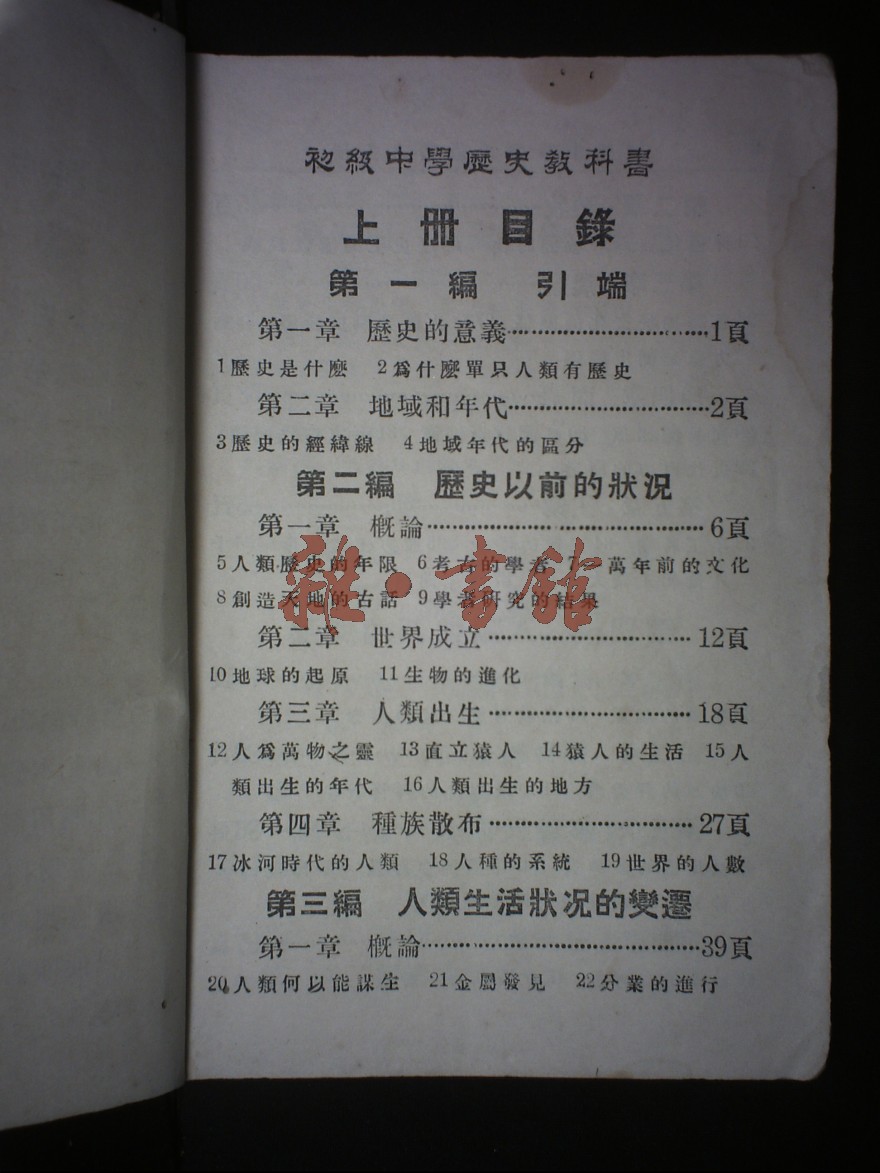 初級中學歷史教科書
上冊目錄
第一編 引端
第一章 歷史的意義…………………………1頁
1歷史是什麽 2爲什麽單只人類有歷史
第二章 地域和年代…………………………2頁
3歷史的經緯線 4地域年代的區分
第二編 歷史以前的狀況
第一章 概論…………………………………6頁
5人類歷史的年限 6考古的學者 7一萬年前的文化
8創造天地的古話 9學者研究的結果
第二章 世界成立…………………………12頁
10地球的起原 11生物的進化
第三章 人類出生…………………………18頁
12人爲萬物之靈 13直立猿人 14猿人的生活 15人
類出生的年代 16人類出生的地方
第四章 種族散布…………………………27頁
17冰河時代的人類 18人種的系統 19世界的人數
第三編 人類生活狀况的變遷
第一章 概論…………………………………39頁
20人類何以能謀生 21金屬發見 22分業的進行
雜·書館